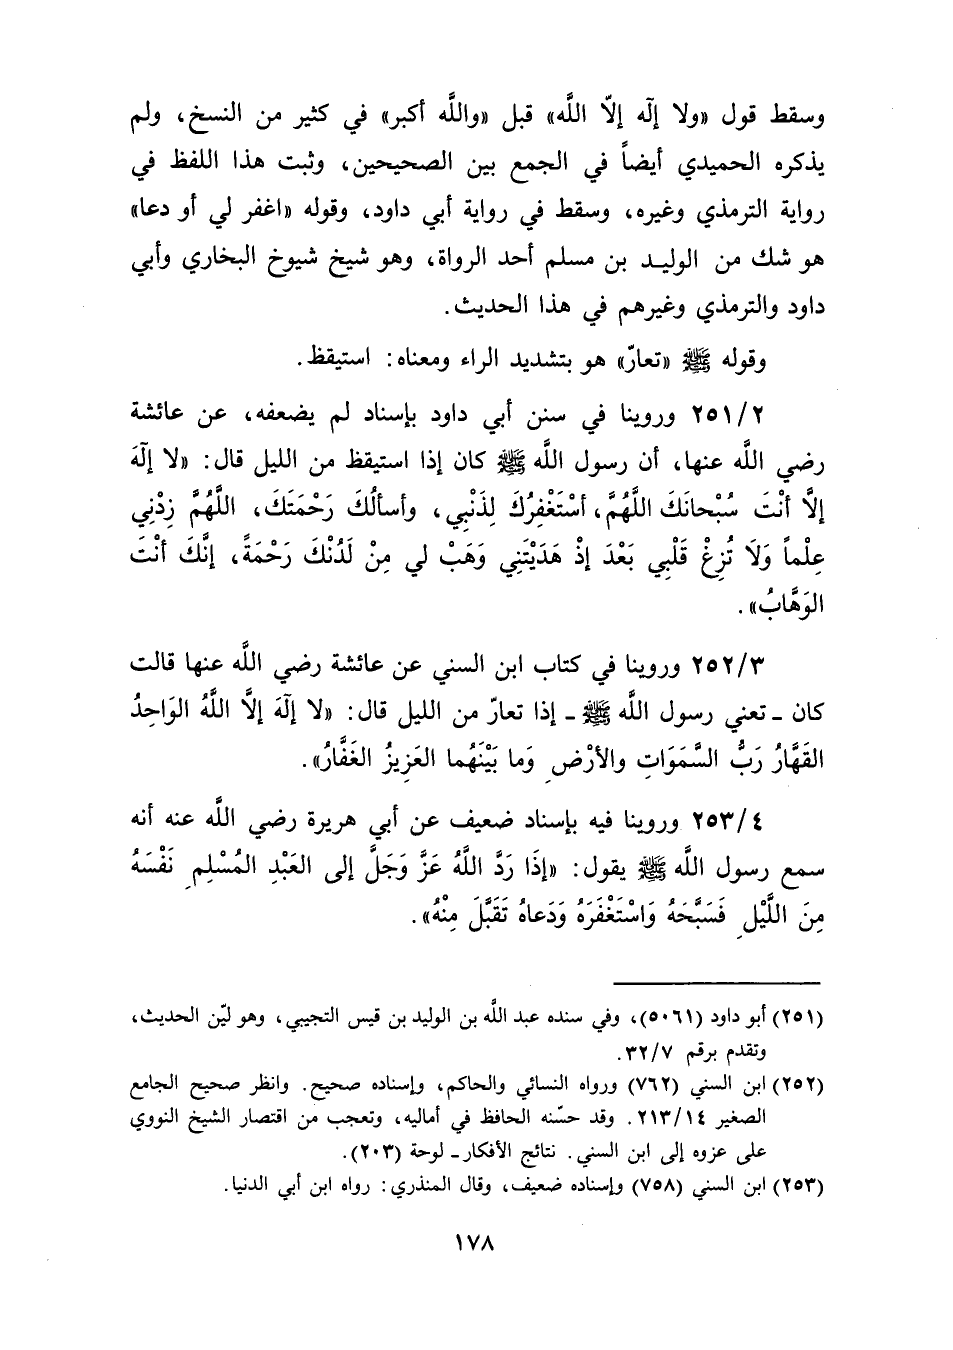 وسقط قول «ولا إلٓه إلّا اللَّه» قبل «واللَّه أكبر» في كثير من النسخ، ولم
يذكره الحميدي أيضاً في الجمع بين الصحيحين، وثبت هذا اللفظ في
رواية الترمذي وغيره، وسقط في رواية أبي داود، وقوله «اغفر لي أو دعا»
هو شك من الوليد بن مسلم أحد الرواة، وهو شيخ شيوخ البخاري وأبي
داود والترمذي وغيرهم في هذا الحديث.
وقوله ﷺ «تعارّ» هو بتشديد الراء ومعناه: استيقظ.
٢٥١/٢ وروينا في سنن أبي داود بإسناد لم يضعفه، عن عائشة
رضي اللَّه عنها، أن رسول اللَّه ﷺ كان إذا استيقظ من الليل قال: «لا إلٓهَ
إلَّا أنْتَ سُبْحانَكَ اللَّهُمَّ، أسْتَغْفِرُكَ لِذَنْبِي، وأسألُكَ رَحْمَتَكَ، اللَّهُمَّ زِدْنِي
عِلْماً وَلَا تُزِغْ قَلْبِي بَعْدَ إذْ هَدَيْتَنِي وَهَبْ لي مِنْ لَدُنْكَ رَحْمَةً، إنَّكَ أنْتَ
الوَهَّابُ».
٢٥٢/٣ وروينا في كتاب ابن السني عن عائشة رضي اللَّه عنها قالت
كان ـ تعني رسول اللَّه ﷺ ـ إذا تعارّ من الليل قال: «لا إلٓهَ إلَّا اللَّهُ الوَاحِدُ
القَهَّارُ رَبُّ السَّمَوَاتِ والأرْضِ وَما بَيْنَهُما العَزِيزُ الغَفَّارُ».
٢٥٣/٤ وروينا فيه بإسناد ضعيف عن أبي هريرة رضي اللَّه عنه أنه
سمع رسول اللَّه ﷺ يقول: «إذَا رَدَّ اللَّهُ عَزَّ وَجَلَّ إلى العَبْدِ المُسْلِمِ نَفْسَهُ
مِنَ اللَّيْلِ فَسَبَّحَهُ وَاسْتَغْفَرَهُ وَدَعاهُ تَقَبَّلَ مِنْهُ».
(٢٥١) أبو داود (٥٠٦١)، وفي سنده عبد اللَّه بن الوليد بن قيس التجيبي، وهو ليّن الحديث،
وتقدم برقم ٣٢/٧.
(٢٥٢) ابن السني (٧٦٢) ورواه النسائي والحاكم، وإسناده صحيح. وانظر صحيح الجامع
الصغير ٢١٣/١٤. وقد حسّنه الحافظ في أماليه، وتعجب من اقتصار الشيخ النووي
على عزوه إلى ابن السني. نتائج الأفكار ـ لوحة (٢٠٣).
(٢٥٣) ابن السني (٧٥٨) وإسناده ضعيف، وقال المنذري: رواه ابن أبي الدنيا.
١٧٨